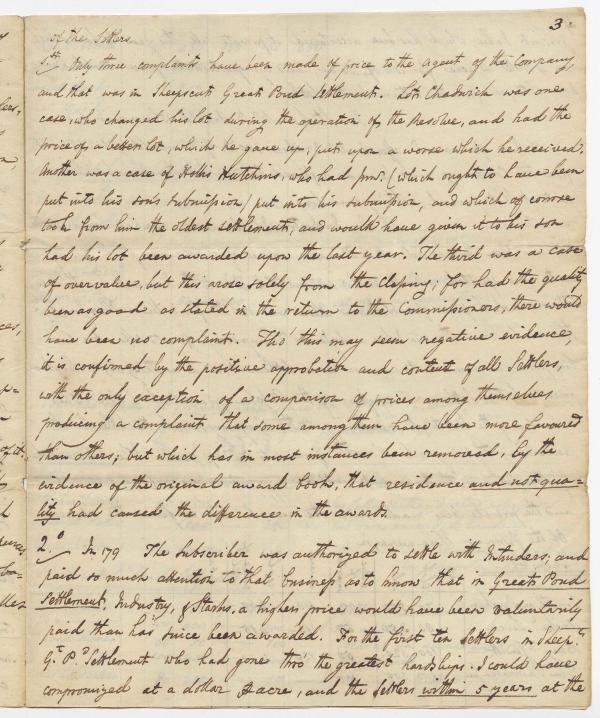 3
of the Settlers
1st. Only three complaints have been made of price to the Agent of the Company,
and that was in Sheepscut Great Pond Settlement. Lot Chadwick was one
case, who changed his lot during the operation of the Resolve, and had the
price of a better lot, which he gave up, put upon a worse which he received.
Another was a case of Hollis Hutchins, who had (which ought to have been
put into his son's submission) put into his submission, and which of course
took from him the oldest settlement, and would have given it to his son
had his lot been awarded upon the last year. The third was a case
of overvalue, but this arose solely from the Classing; for had the quality
been as good as stated in the return to the Commissioners, there would
have been no complaint. Tho' this may seem negative evidence,
it is confirmed by the positive approbation and content of all Settlers,
with the only exception of a comparison of prices among themselves
producing a complaint that some among them have been more favoured
than others; but which has in most instances been removed, by the
evidence of the original award book, that residence and not qua-
lity had caused the difference in the awards.
2.o In 179 The Subscriber was authorized to settle with Intruders; and
paid so much attention to that business as to know that in Great Pond
Settlement, Industry, & Starks, a higher price would have been voluntarily
paid than has since been awarded. For the first ten Settlers in Sheep.t
G.t P.d Settlement who had gone thro' the greatest hardships. I could have
compromized at a dollar acre, and the Settlers within 5 years at the